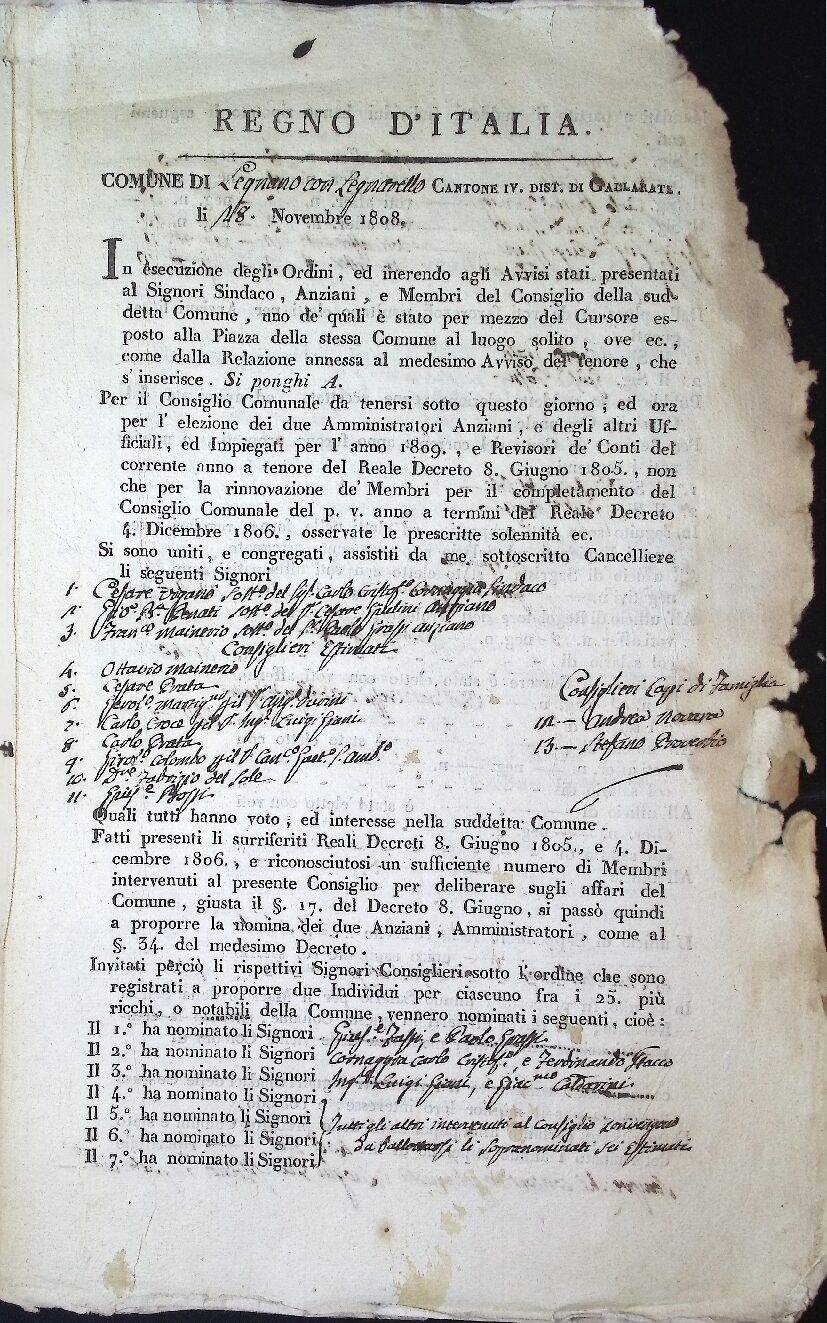 REGNO D'ITALIA.
COMUNE DI Legnano con Legnarello CANTONE IV. DIST. DI GALLARATE.
li 18. Novembre 1808.
In esecuzione degli Ordini, ed inerendo agli Avvisi stati presentati
al Signori Sindaco, Anziani, e Membri del Consiglio della sud-
detta Comune, uno de' quali è stato per mezzo del Cursore es-
posto alla Piazza della stessa Comune al luogo solito, ove ec.,
come dalla Relazione annessa al medesimo Avviso del tenore, che
s' inserisce. Si ponghi A.
Per il Consiglio Comunale da tenersi sotto questo giorno; ed ora
per l' elezione dei due Amministratori Anziani, e degli altri Uf-
ficiali, ed Impiegati per l' anno 1809., e Revisori de' Conti del
corrente anno a tenore del Reale Decreto 8. Giugno 1805., non
che per la rinnovazione de' Membri per il completamento del
Consiglio Comunale del p. v. anno a termini del Reale Decreto
4. Dicembre 1806., osservate le prescritte solennità ec.
Si sono uniti, e congregati, assistiti da me sottoscritto Cancelliere
li seguenti Signori
1. Cesare Viganò Sostº del Sigr Carlo Cornaggia Sindaco
2. Penati sostº del Sr Cesare anziano
3. Francº Mainerio sostº del Sr Paolo Grassi anziano
Consiglieri Estimati
4. Ottavio Mainerio
5. Cesare Prata
6.
7. Carlo Croce pel Sr Ingre Luigi Giani
8. Carlo Prata
9. Colombo pel Sr
10. Fabrizio del Sole
11. Bossi
Consiglieri Capi di Famiglia
12. — Andrea Novara
13. — Stefano Proverbio
Quali tutti hanno voto, ed interesse nella suddetta Comune.
Fatti presenti li surriferiti Reali Decreti 8. Giugno 1805., e 4. Di-
cembre 1806., e riconosciutosi un sufficiente numero di Membri
intervenuti al presente Consiglio per deliberare sugli affari del
Comune, giusta il §. 17. del Decreto 8. Giugno, si passò quindi
a proporre la nomina dei due Anziani, Amministratori, come al
§. 34. del medesimo Decreto.
Invitati perciò li rispettivi Signori Consiglieri sotto l'ordine che sono
registrati a proporre due Individui per ciascuno fra i 25. più
ricchi, o notabili della Comune, vennero nominati i seguenti, cioè:
Il 1.º ha nominato li Signori e Paolo Grassi
Il 2.º ha nominato li Signori Cornaggia Carlo e Ferdinando
Il 3.º ha nominato li Signori Ingre Luigi Giani, e Giacmo Calderini
Il 4.º ha nominato li Signori
Il 5.º ha nominato li Signori Tutti gli altri intervenuti al Consiglio convengono
Il 6.º ha nominato li Signori da Ballottarsi li sopranominati sei Estimati
Il 7.º ha nominato li Signori